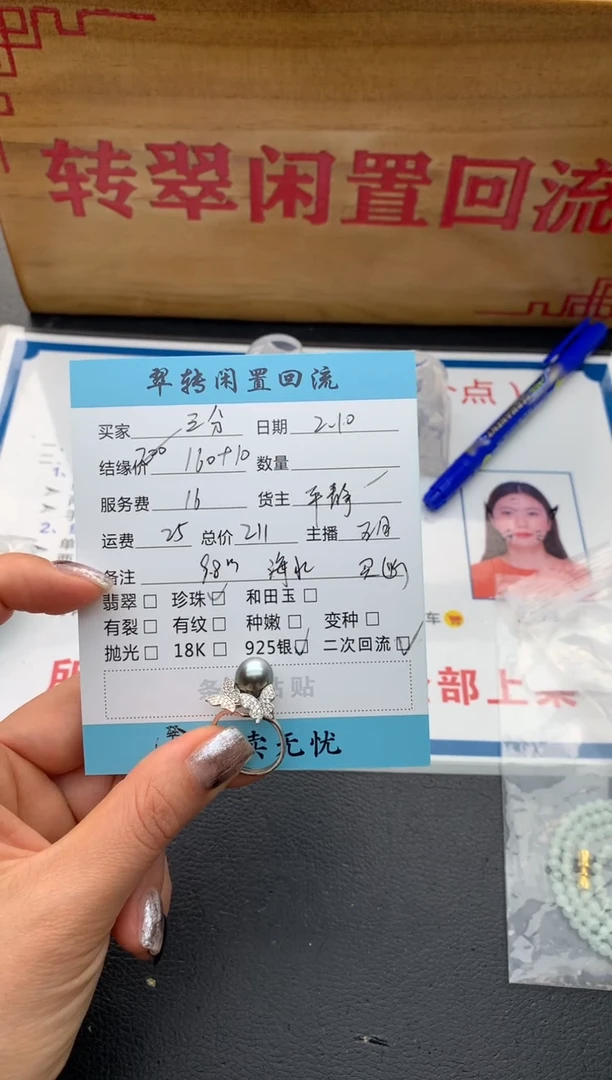 转翠闲置回流
点）
翠转闲置回流
买家 三分 日期 2.10
结缘价 200 160+10 数量
服务费 16 货主 平静
运费 25 总价 211 主播 五月
备注 9.8m 海水
翡翠□ 珍珠☑ 和田玉□
有裂□ 有纹□ 种嫩□ 变种□
抛光□ 18K□ 925银☑ 二次回流☑
条 粘贴
读无忧
车
所 部上架